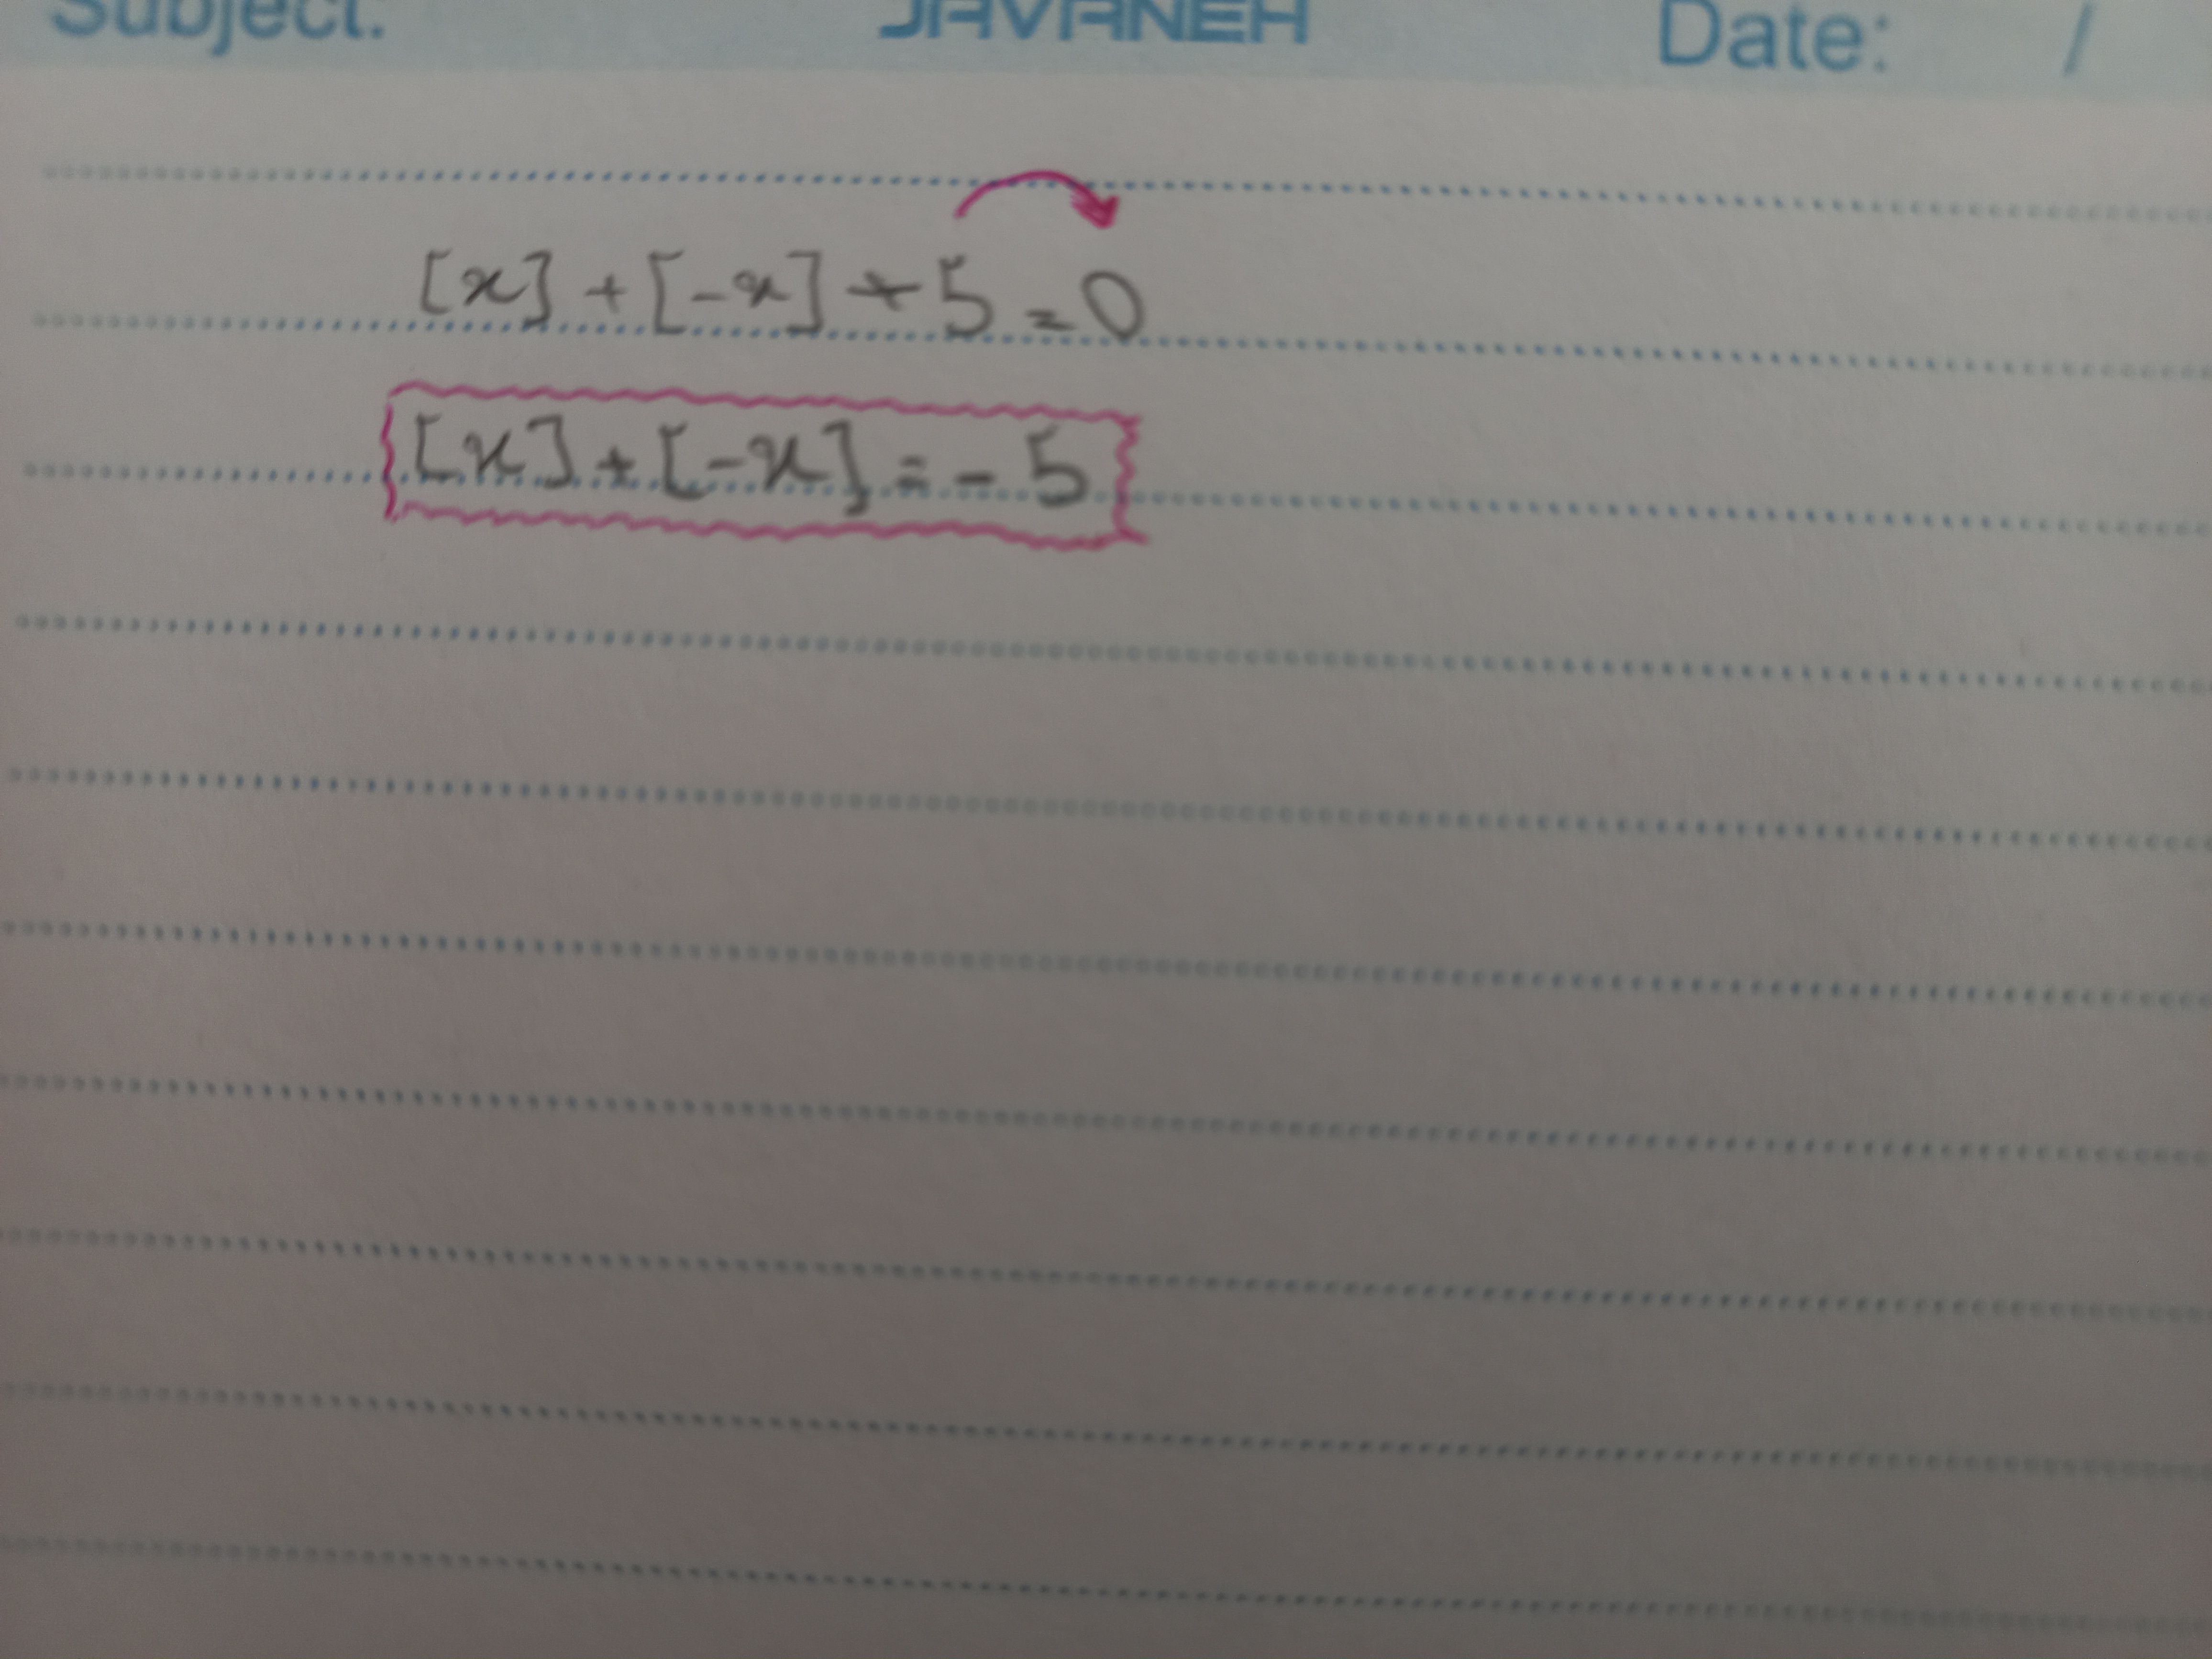 Subject: JAVANEH Date: /
[x] + [-x] + 5 = 0
[x] + [-x] = - 5